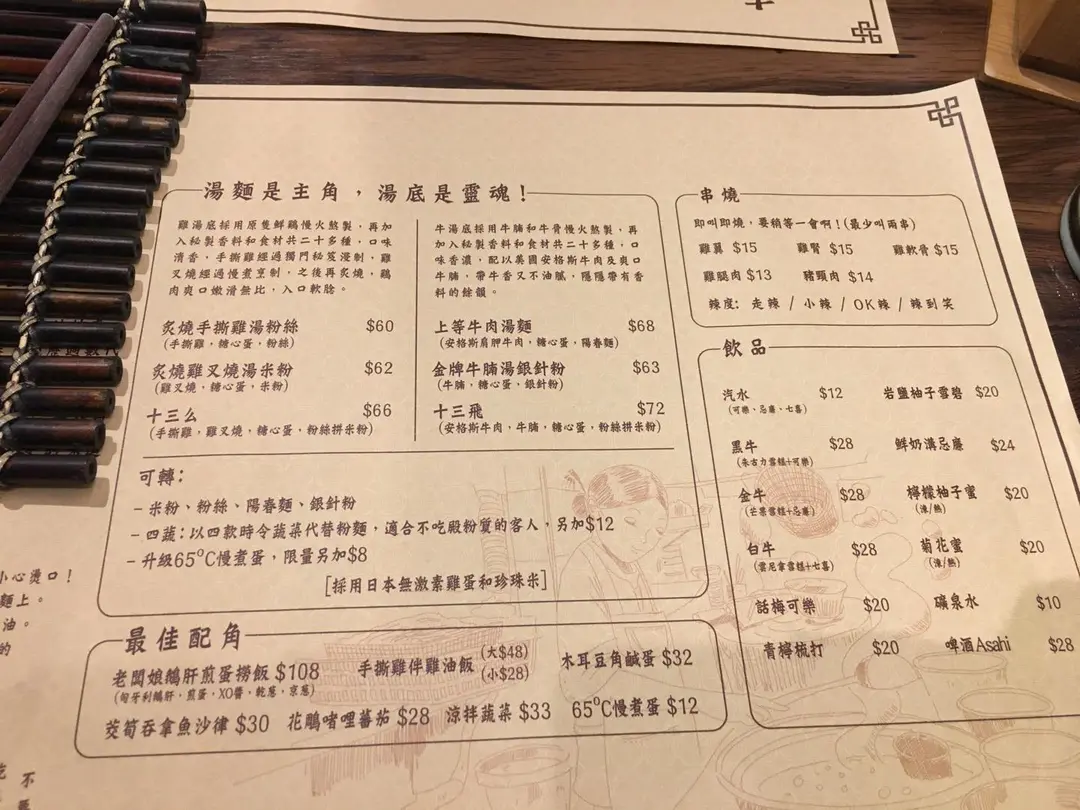 湯麵是主角，湯底是靈魂！
雞湯底採用原隻鮮鷄慢火熬製，再加
入秘製香料和食材共二十多種，口味
清香，手撕雞經過獨門秘笈浸制，雞
叉燒經過慢煮烹制，之後再炙燒，鷄
肉爽口嫩滑無比，入口軟腍。
炙燒手撕雞湯粉絲 $60
(手撕雞，糖心蛋，粉絲)
炙燒雞叉燒湯米粉 $62
(雞叉燒，糖心蛋，米粉)
十三么 $66
(手撕雞，雞叉燒，糖心蛋，粉絲拼米粉)
牛湯底採用牛腩和牛骨慢火熬製，再
加入秘製香料和食材共二十多種，口
味香濃，配以美國安格斯牛肉及爽口
牛腩，帶牛香又不油膩，隱隱帶有香
料的餘韻。
上等牛肉湯麵 $68
(安格斯肩胛牛肉，糖心蛋，陽春麵)
金牌牛腩湯銀針粉 $63
(牛腩，糖心蛋，銀針粉)
十三飛 $72
(安格斯牛肉，牛腩，糖心蛋，粉絲拼米粉)
可轉：
- 米粉、粉絲、陽春麵、銀針粉
- 四蔬：以四款時令蔬菜代替粉麵，適合不吃殿粉質的客人，另加$12
- 升級65°C慢煮蛋，限量另加$8
[採用日本無激素雞蛋和珍珠米]
最佳配角
老闆娘鵝肝煎蛋撈飯 $108
(匈牙利鵝肝，煎蛋，XO醬，乾葱，京葱)
手撕雞伴雞油飯 (大$48)
(小$28)
木耳豆角鹹蛋 $32
茭筍吞拿魚沙律 $30 花鵰啫喱蕃茄 $28 涼拌蔬菜 $33 65°C慢煮蛋 $12
串燒
即叫即燒，要稍等一會啊！(最少叫兩串)
雞翼 $15 雞腎 $15 雞軟骨 $15
雞腿肉 $13 豬頸肉 $14
辣度：走辣 / 小辣 / OK辣 / 辣到笑
飲品
汽水 $12 岩鹽柚子雪碧 $20
(可樂、忌廉、七喜)
黑牛 $28 鮮奶溝忌廉 $24
(朱古力雪糕+可樂)
金牛 $28 檸檬柚子蜜 $20
(芒果雪糕+忌廉) (凍/熱)
白牛 $28 菊花蜜 $20
(雲尼拿雪糕+七喜) (凍/熱)
話梅可樂 $20 礦泉水 $10
青檸梳打 $20 啤酒Asahi $28
小心燙口！
麵上。
油。
的
不